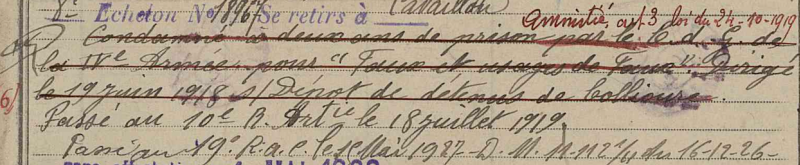 8e Echelon No 18967 Se retire à Cavaillon
Amnistié art 3 loi du 24-10-1919
Condamné à deux ans de prison par le C. d. G. de
la IVe Armée pour "Faux et usages de Faux". Dirigé
6) le 19 juin 1918 s/ Dépôt de détenus de Collioure.
Passé au 10e R. Artie le 18 juillet 1919.
Passé au 19e R.a.c. le 1e Mai 1927 - D. M. n 11274 du 16-12-26-